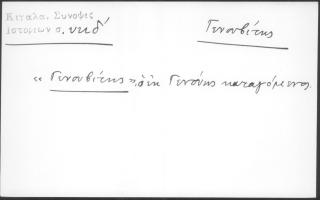 Κιγάλα. Σύνοψις
Ιστοριών σ. υκδ´
Γενουβίτης
«Γενουβίτης», ὁ ἐκ Γενούης καταγόμενος.